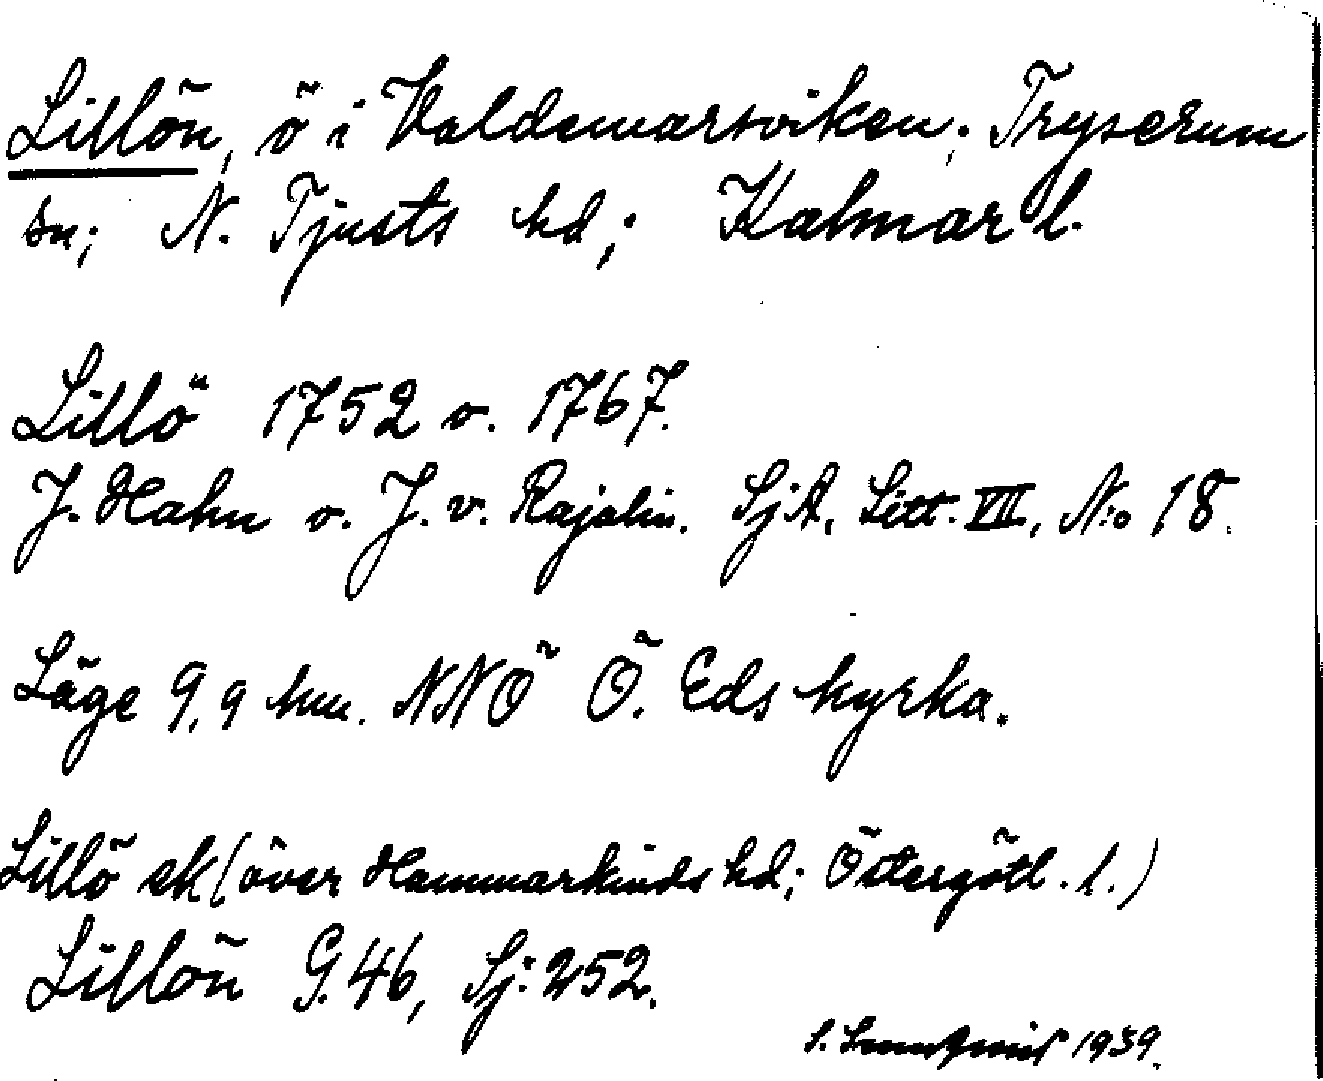 Lillön, ö i Valdemarsviken; Tryserum
sn; N. Tjusts hd; Kalmar l.
Lillö 1752 o. 1767.
J. Hahn o. J. v. Rajalin. SjA, Litt. VII, No 18.
Läge 9,9 km. NNÖ Ö. Eds kyrka.
Lillö ek (över Hammarkinds hd; Östergötl. l.)
Lillön G. 46, Sj: 252.
1939.